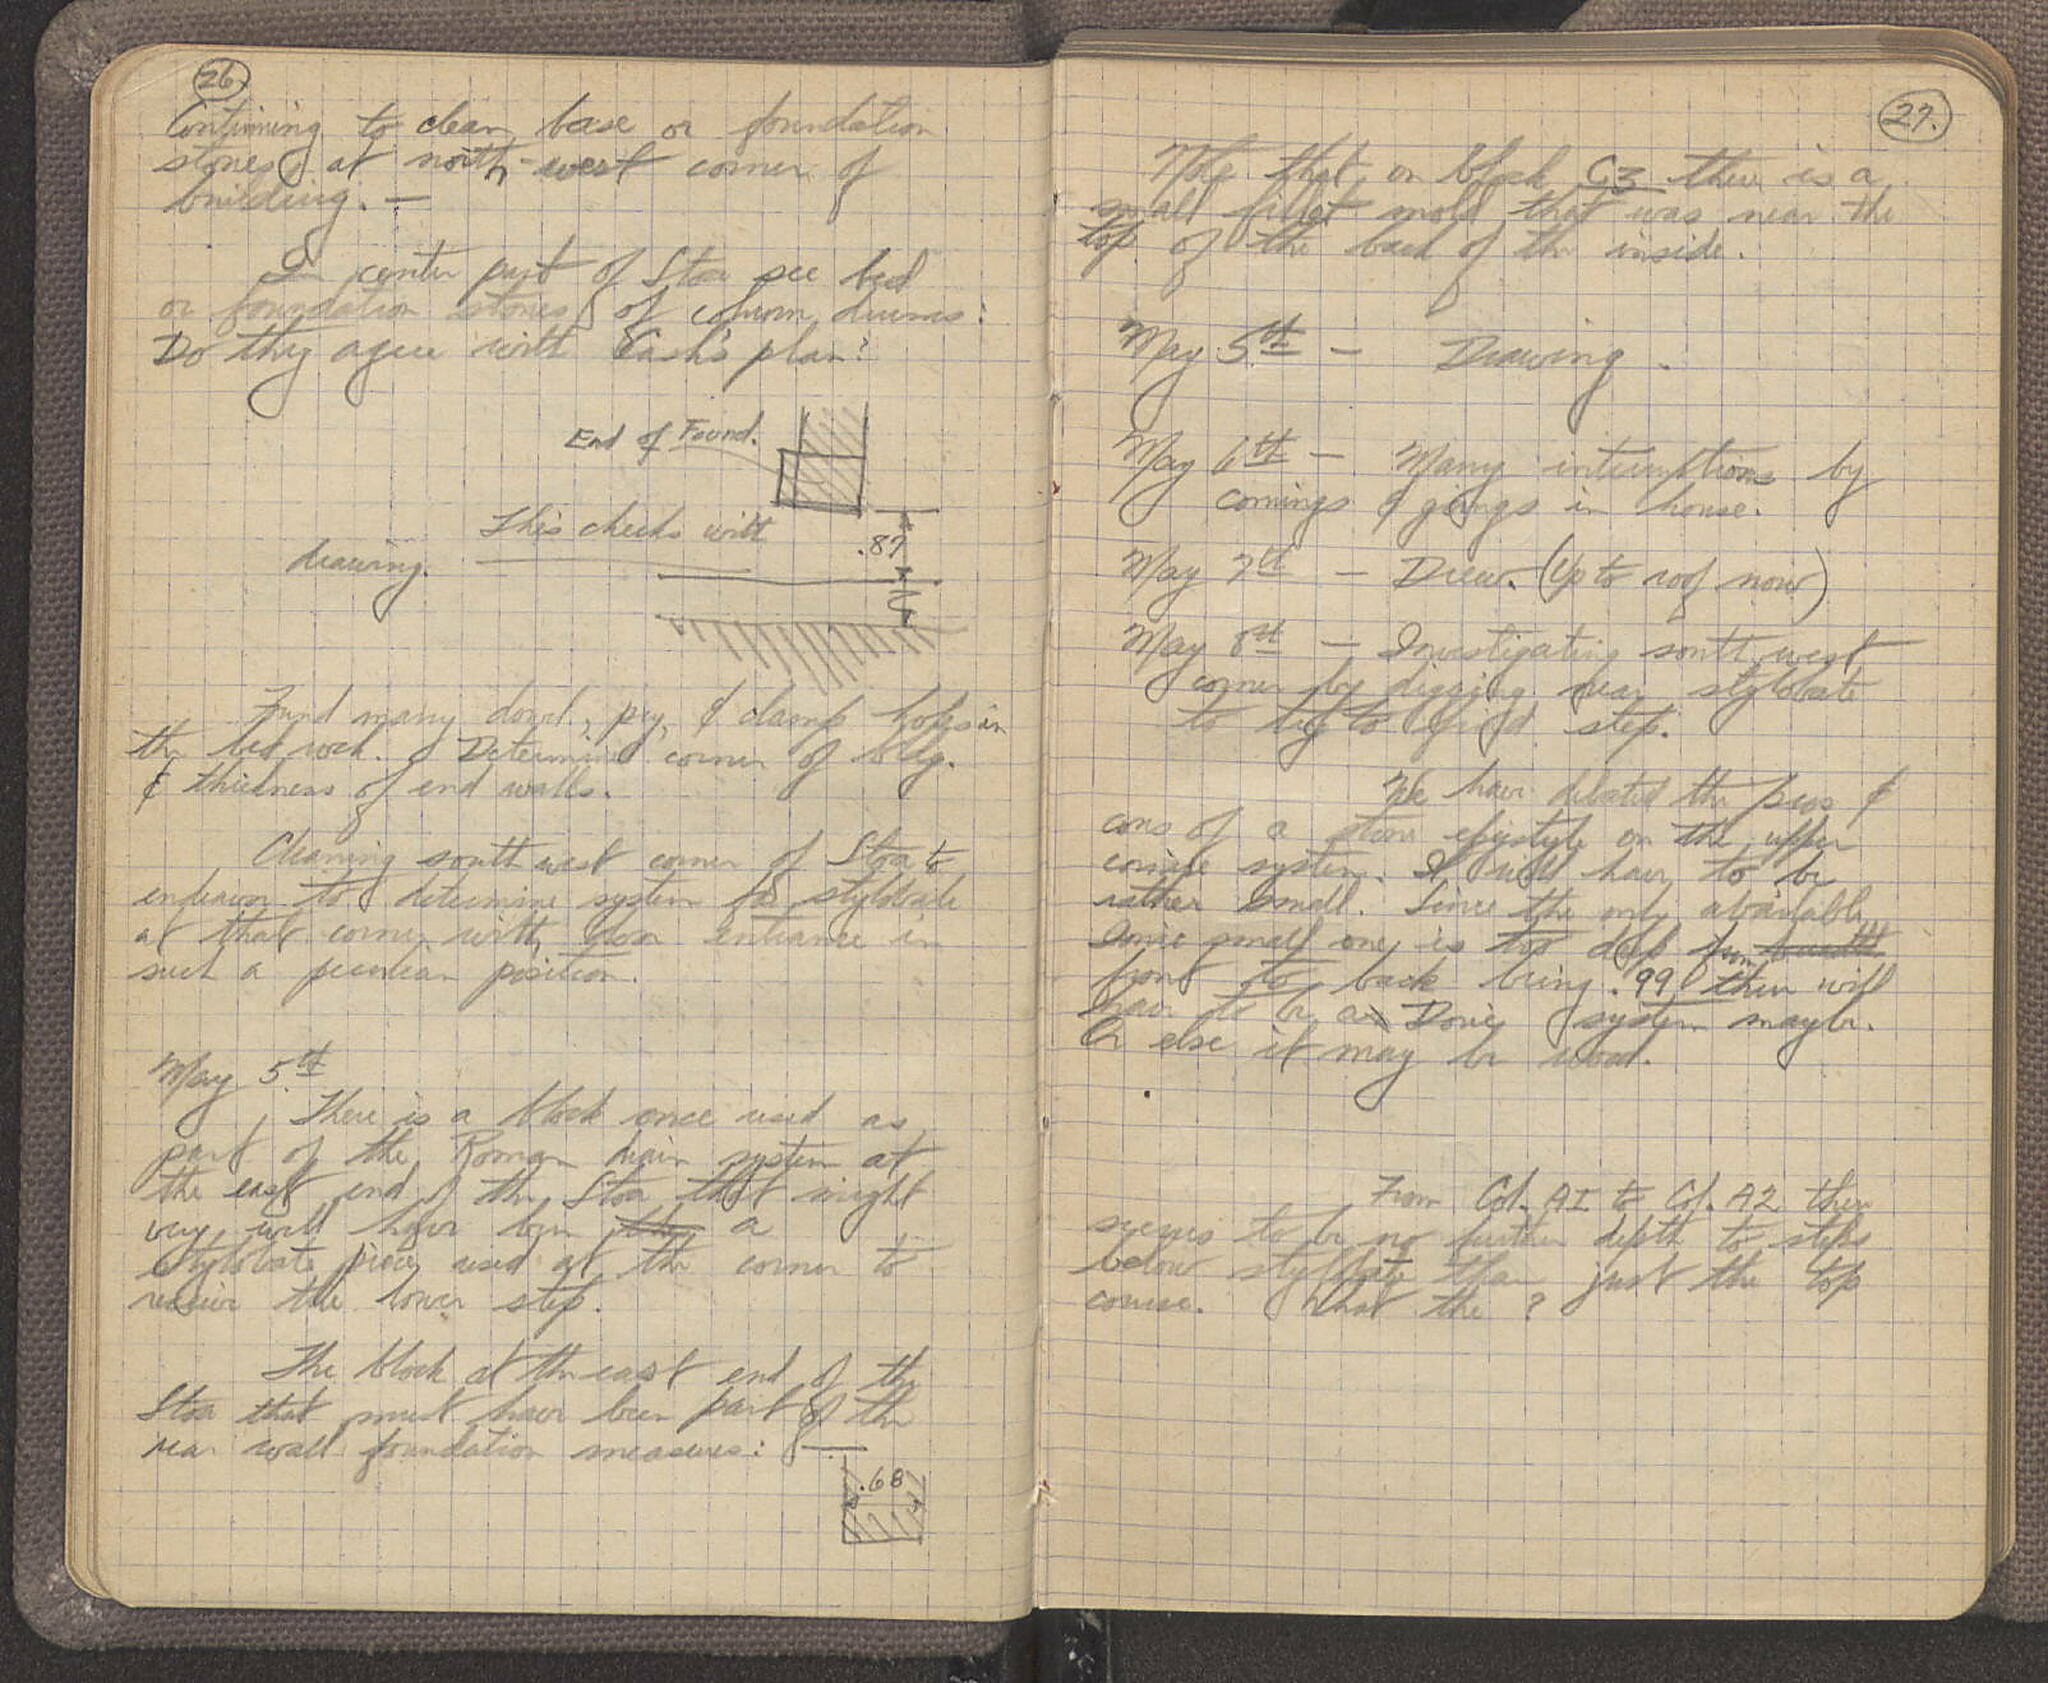 26.
Continuing to clean base or foundation
stones at north-west corner of
building. —
In center part of Stoa see bed
or foundation stones of column drums:
Do they agree with Cash's plan?
End of Found.
This checks with
drawing.
.87
Find many dowel, pry, & clamp holes in
the bed rock. Determined corner of bldg.
& thickness of end walls.
Cleaning south west corner of Stoa to
endeavor to determine system for stylobate
at that corner with door entrance in
such a peculiar position.
May 5th
There is a block once used as
part of the Roman drain system at
the east end of the Stoa that might
very well have been a
stylobate piece used at the corner to
receive the lower step.
The block at the east end of the
Stoa that must have been part of the
rear wall foundation measures: —
.68
27.
Note that on block C3 there is a
small fillet mold that was near the
top of the back of the inside.
May 5th — Drawing.
May 6th — Many interruptions by
comings & goings in house.
May 7th — Drew. (Up to roof now)
May 8th — Investigating south west
corner by digging near stylobate
to try to find step.
We have debated the pros &
cons of a stone epistyle on the upper
cornice system. It will have to be
rather small. Since the only available
Ionic small one is too deep from
front to back being .99 there will
have to be a Doric system maybe.
Or else it may be wood.
From Col. A1 to Col. A2 there
seems to be no further depth to steps
below stylobate than just the top
course. What the ?